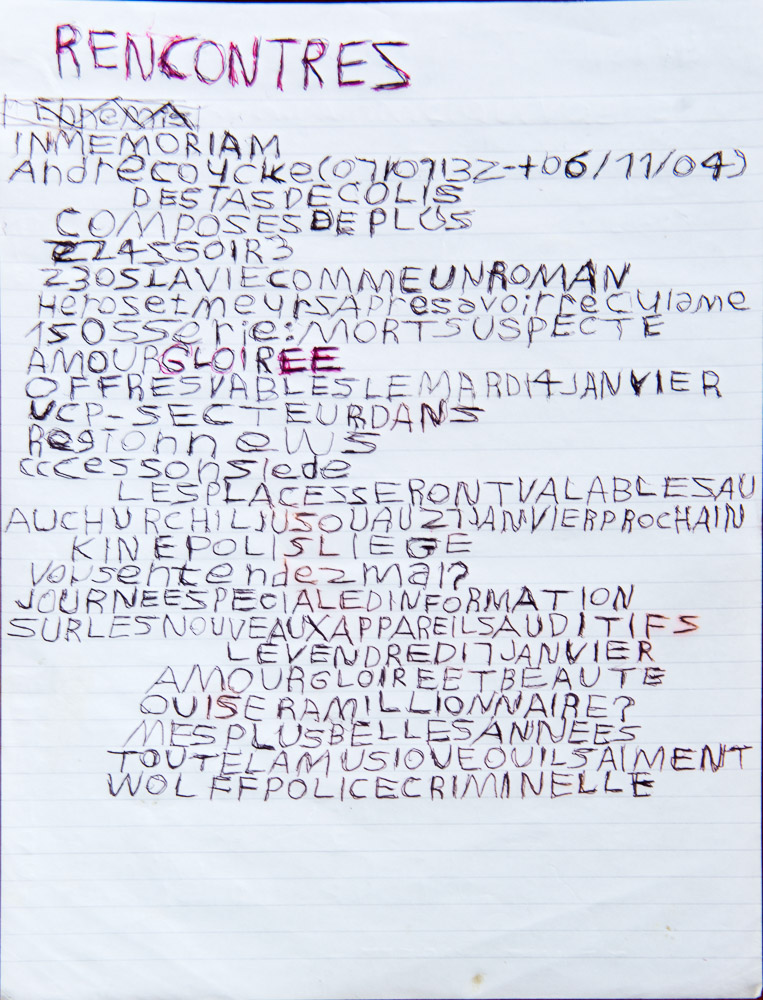 RENCONTRES
INMEMORIAM
Andrécoycke(07/0713Z-+06/11/04)
DESTASDECOLIS
COMPOSESDEPLUS
224SSOIR3
230SLAVIECOMMEUNROMAN
HerosetmeursAPresavoirreculame
150SSerie:MORTSUSPECTE
AMOURGLOIREE
OFFRESVABLESLEMARDI4JANVIER
VCP-SECTEURDANS
Regionnews
cccessonslede
LESPLACESSERONTVALABLESAU
AUCHURCHILJUSQUAU27JANVIERPROCHAIN
KINEPOLISLIEGE
vousentendezmal?
JOURNEESPECIALEDINFORMATION
SURLESNOUVEAUXAPPAREILSAUDITIFS
LEVENDREDI7JANVIER
AMOURGLOIREETBEAUTE
QUISERAMILLIONNAIRE?
MESPLUSBELLESANNEES
TOUTELAMUSIQUEQUILSAIMENT
WOLFFPOLICECRIMINELLE